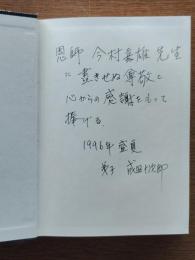 恩師 今村嘉雄 先生
に 尽きせぬ 尊敬と
心からの 感謝をもって
捧げる
1996年 盛夏
成田十次郎